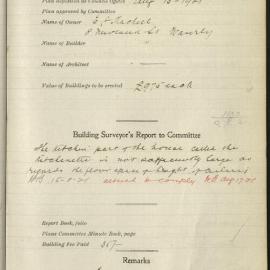 Plan deposited at Council Office Aug 15-1921
Plan approved by Committee
Name of Owner
Name of Builder
Name of Architect
Value of Buildings to be erected £975 each
Building Surveyor's Report to Committee
The kitchen part of the house called the
Kitchenette is not sufficiently large as
regards the floor space & height of ceiling
15-8-21 to comply Aug 17-21
Report Book, folio
Plans Committee Minute Book, page
Building Fee Paid 35/-
Remarks